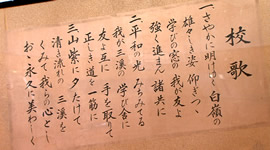 校歌
一、さやかに明けゆく白嶺の
雄々しき姿仰ぎつゝ
学びの窓の我が友よ
強く進まん諸共に
二、平和の光みちみてる
我が三溪の学び舎に
友よ互に手を取りて
正しき道を一筋に
三、山紫に夕たけて
清き流れの三溪を
くみて我らの心とし
おゝ永久に美わしく